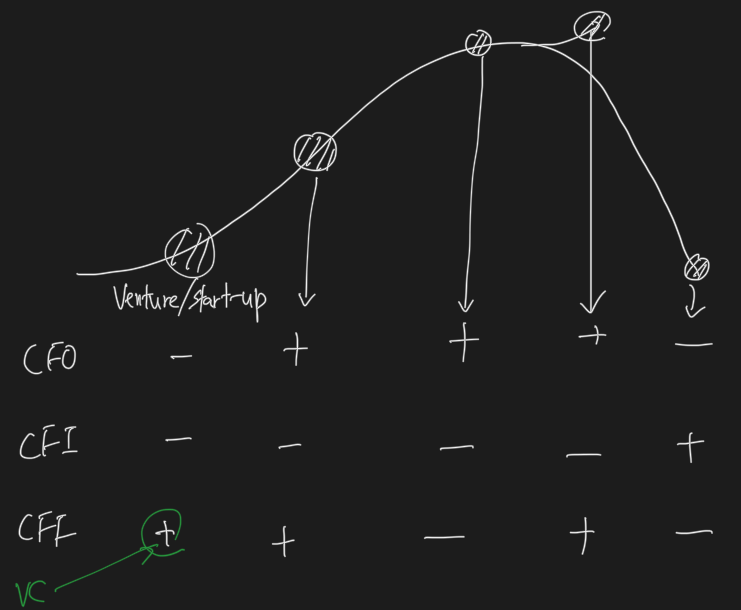 Venture/start-up
CFO - + + + -
CFI - - - - +
CFF + + - + -
VC